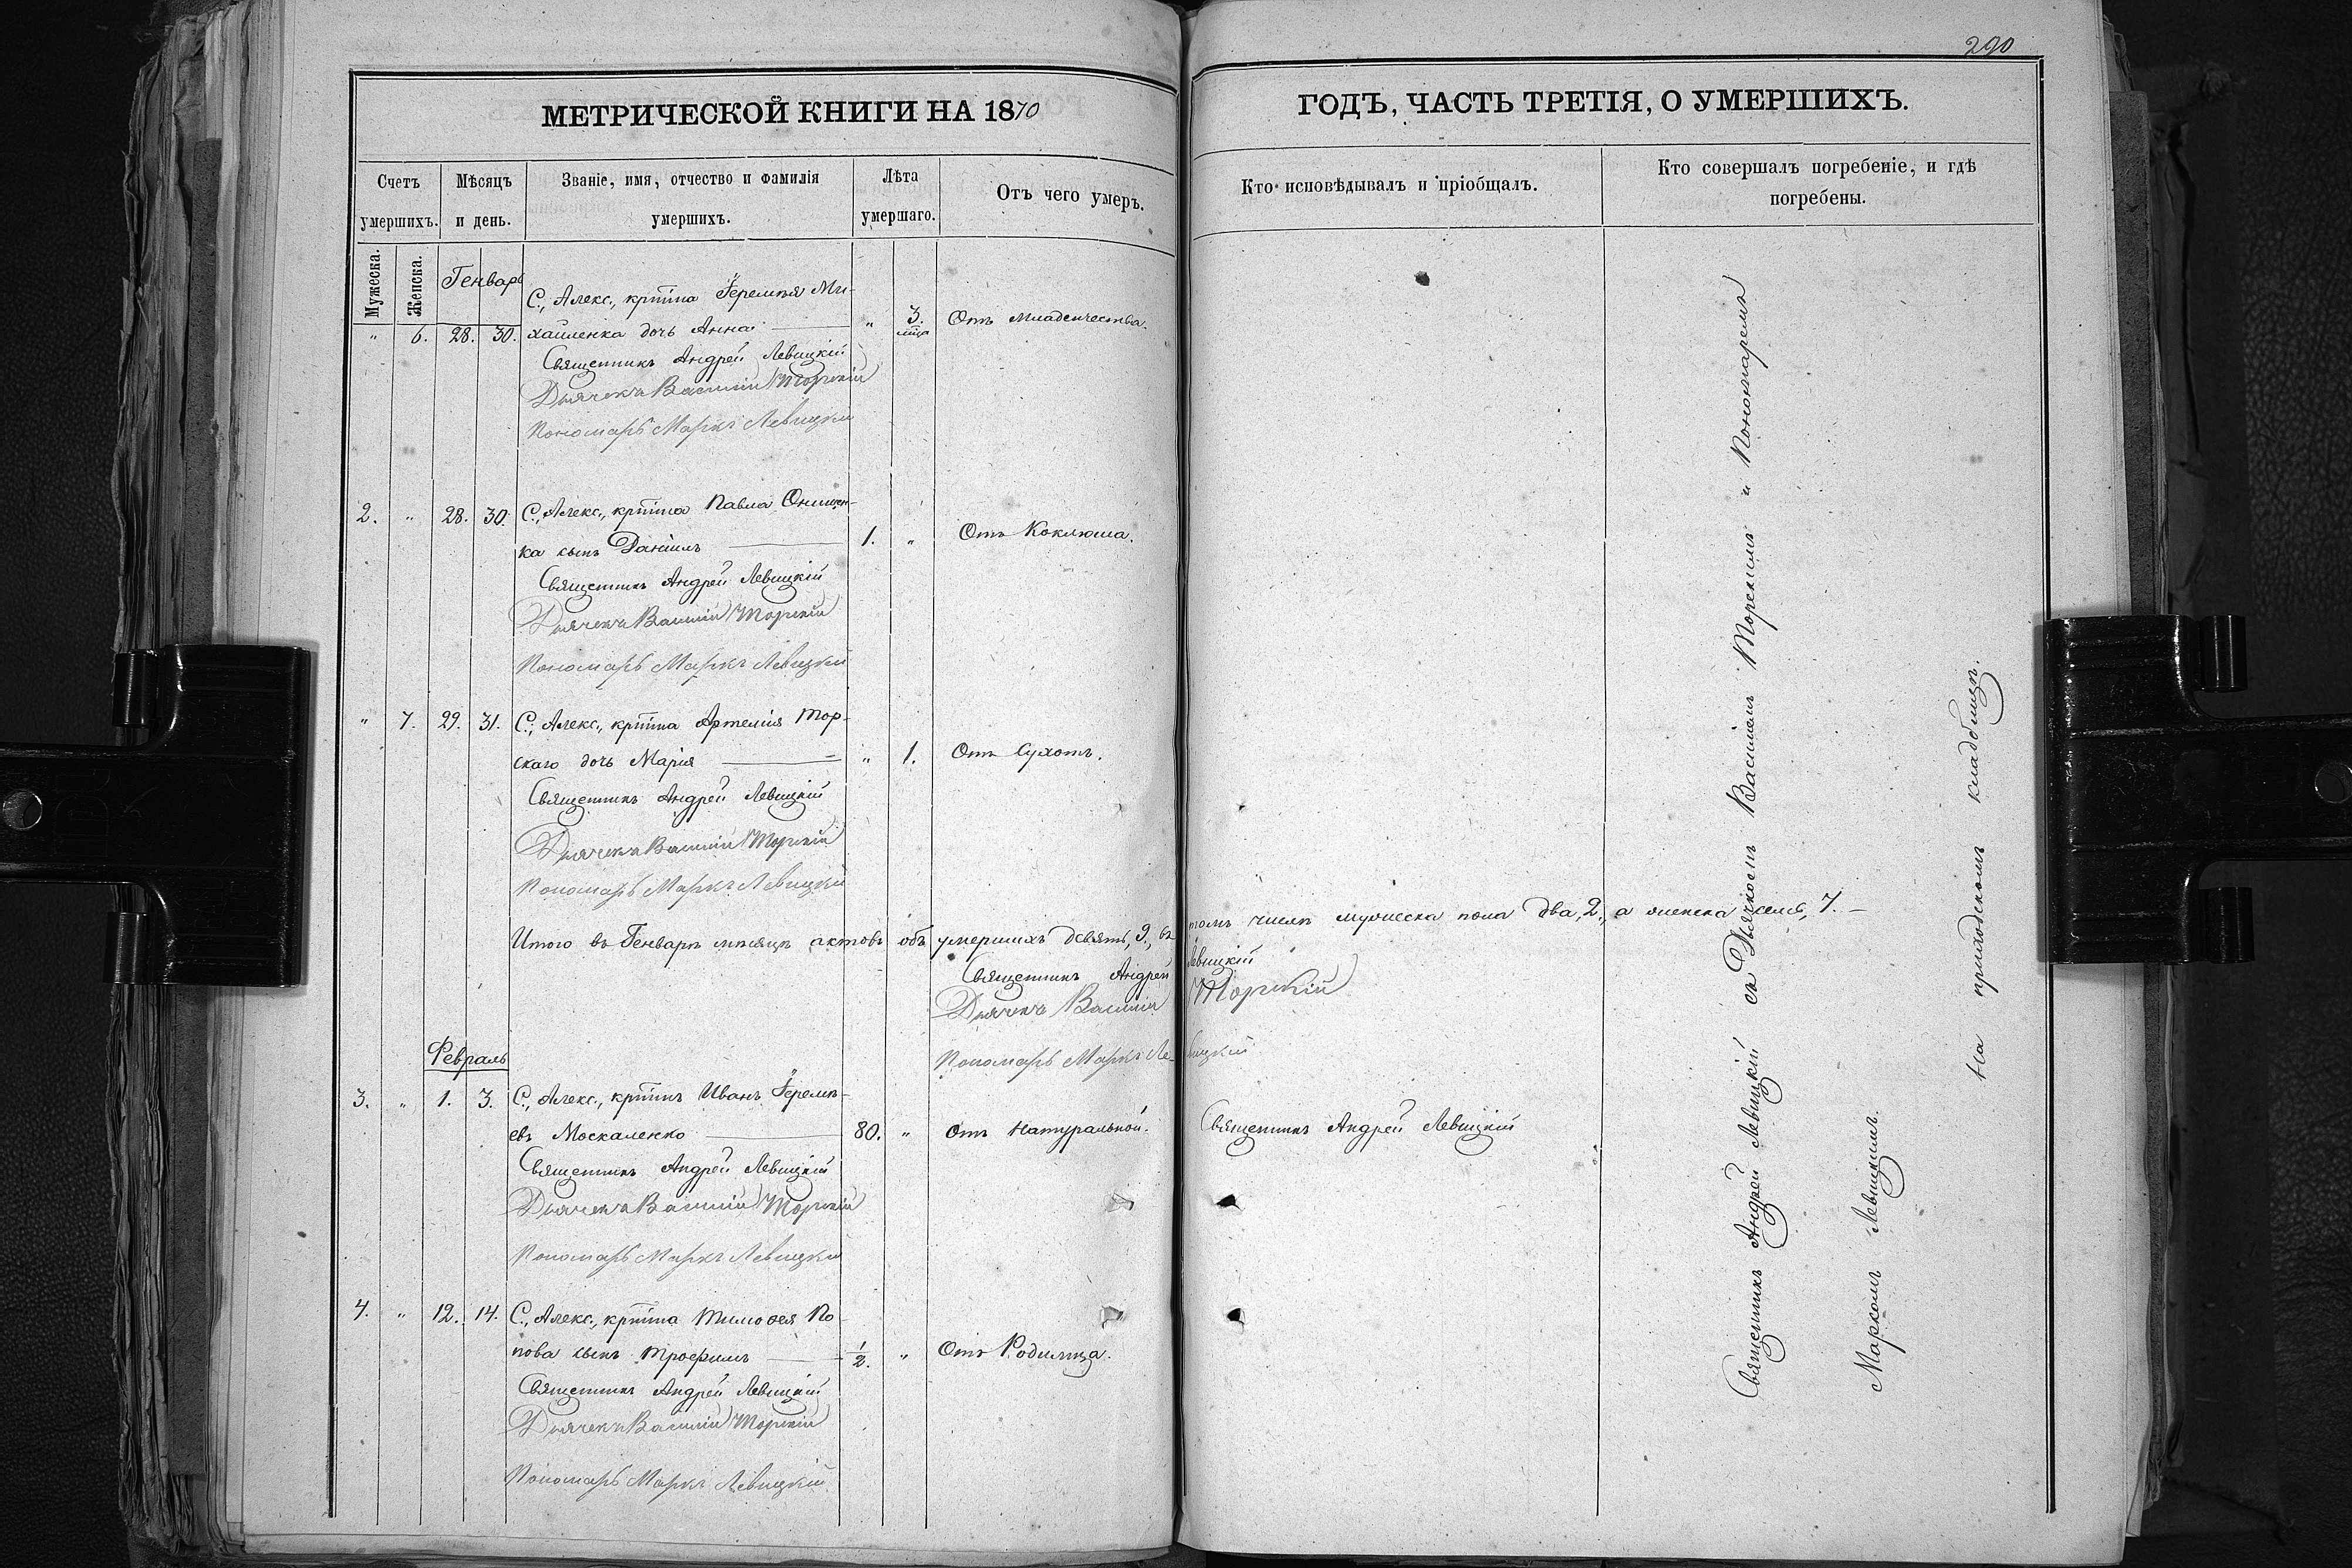 290
МЕТРИЧЕСКОЙ КНИГИ НА 1870
ГОДЪ, ЧАСТЬ ТРЕТІЯ, О УМЕРШИХЪ.
Счетъ умершихъ.
Мѣсяцъ и день.
Званіе, имя, отчество и фамилія умершихъ.
Лѣта умершаго.
Отъ чего умеръ.
Кто исповѣдывалъ и пріобщалъ.
Кто совершалъ погребеніе, и гдѣ погребены.
Мужеска.
Женска.
Генварь
С., Алекс., крттна Іереміея Ми-
" 6. 28. 30. хайленка дочь Анна " 3. Отъ младенчества.
Священникъ Андрей Левицкій
Дьячекъ Василій Торскій
Пономарь Маркъ Левицкій
2. " 28. 30. С., Алекс., крттна Павла Онищен-
ка сынъ Даніилъ 1. " Отъ Коклюша.
Священникъ Андрей Левицкій
Дьячекъ Василій Торскій
Пономарь Маркъ Левицкій
" 7. 29. 31. С., Алекс., крттна Артемія Тор-
скаго дочь Марія " 1. Отъ Сухотъ.
Священникъ Андрей Левицкій
Дьячекъ Василій Торскій
Пономарь Маркъ Левицкій
Итого въ Генварѣ мѣсяцѣ актовъ объ умершихъ девять, 9., въ томъ числѣ мужеска пола два, 2., а женска семь, 7.
Священникъ Андрей Левицкій
Дьячекъ Василій Торскій
Пономарь Маркъ Левицкій
Февраль
3. " 1. 3. С., Алекс., крттнъ Иванъ Іеремѣ-
евъ Москаленко 80. " Отъ натуральной. Священникъ Андрей Левицкій
Священникъ Андрей Левицкій
Дьячекъ Василій Торскій
Пономарь Маркъ Левицкій
4. " 12. 14. С., Алекс., крттна Тимоѳея По-
пова сынъ Трофимъ 1/2. " Отъ Родимца.
Священникъ Андрей Левицкій
Дьячекъ Василій Торскій
Пономарь Маркъ Левицкій
Священникъ Андрей Левицкій съ Дьячкомъ Василіемъ Торскимъ и Пономаремъ
Маркомъ Левицкимъ.
На приходскомъ кладбищѣ.